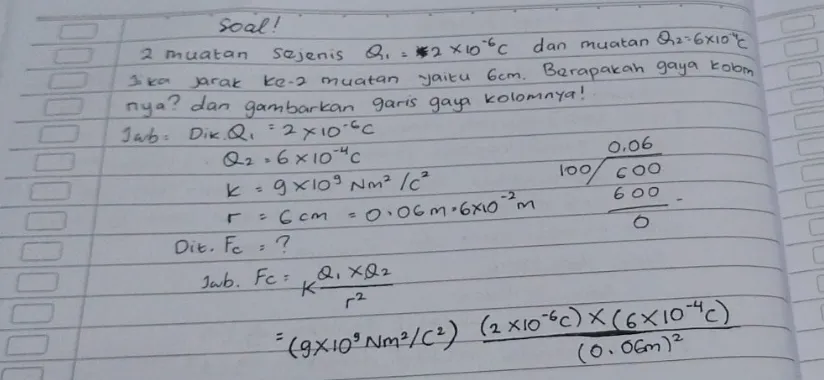 Soal!
2 muatan sejenis Q₁ = 2 × 10⁻⁶C dan muatan Q₂=6×10⁻⁴C
Jika jarak ke-2 muatan yaitu 6cm. Berapakah gaya kolom
nya? dan gambarkan garis gaya kolomnya!
Jwb: Dik. Q₁ = 2 × 10⁻⁶C
Q₂ = 6 × 10⁻⁴C
k = 9 × 10⁹ Nm²/C²
r = 6 cm = 0.06 m = 6×10⁻² m
0.06
100/ 600
600 -
0
Dit. Fc = ?
Jwb. Fc = K Q₁ × Q₂ / r²
= (9×10⁹ Nm²/C²) (2 × 10⁻⁶C) × (6 × 10⁻⁴C) / (0.06m)²